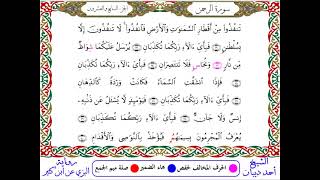 سورة الرحمن
الجزء السابع والعشرون
تَنفُذُوا۟ مِنْ أَقْطَارِ ٱلسَّمَٰوَٰتِ وَٱلْأَرْضِ فَٱنفُذُوا۟ لَا تَنفُذُونَ إِلَّا
بِسُلْطَٰنٍ فَبِأَيِّ ءَالَآءِ رَبِّكُمَا تُكَذِّبَانِ يُرْسَلُ عَلَيْكُمَا شِوَاظٌ
مِّن نَّارٍ وَنُحَاسٍ فَلَا تَنتَصِرَانِ فَبِأَيِّ ءَالَآءِ رَبِّكُمَا تُكَذِّبَانِ
فَإِذَا ٱنشَقَّتِ ٱلسَّمَآءُ فَكَانَتْ وَرْدَةً كَٱلدِّهَانِ
فَبِأَيِّ ءَالَآءِ رَبِّكُمَا تُكَذِّبَانِ فَيَوْمَئِذٍ لَّا يُسْـَٔلُ عَن ذَنۢبِهِۦ
إِنسٌ وَلَا جَآنٌّ فَبِأَيِّ ءَالَآءِ رَبِّكُمَا تُكَذِّبَانِ
يُعْرَفُ ٱلْمُجْرِمُونَ بِسِيمَٰهُمُۥ فَيُؤْخَذُ بِٱلنَّوَٰصِى وَٱلْأَقْدَامِ
الشيخ
أحمد ديبان
الحرف المخالف لحفص
هاء الضمير
صلة ميم الجمع
رواية
البزي عن ابن كثير